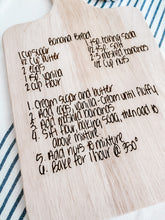 Banana Bread
1 cup sugar
1/2 cup butter
2 eggs
1 tsp. vanilla
2 cup flour
1 tsp. baking soda
1/2 tsp. salt
3 mashed bananas
1/2 cup nuts
1. cream sugar and butter
2. Add eggs, vanilla - cream until fluffy
3. Add mashed bananas
4. Sift flour, baking soda, then add to
above mixture
5. Add nuts to mixture
6. Bake for 1 hour @ 350°